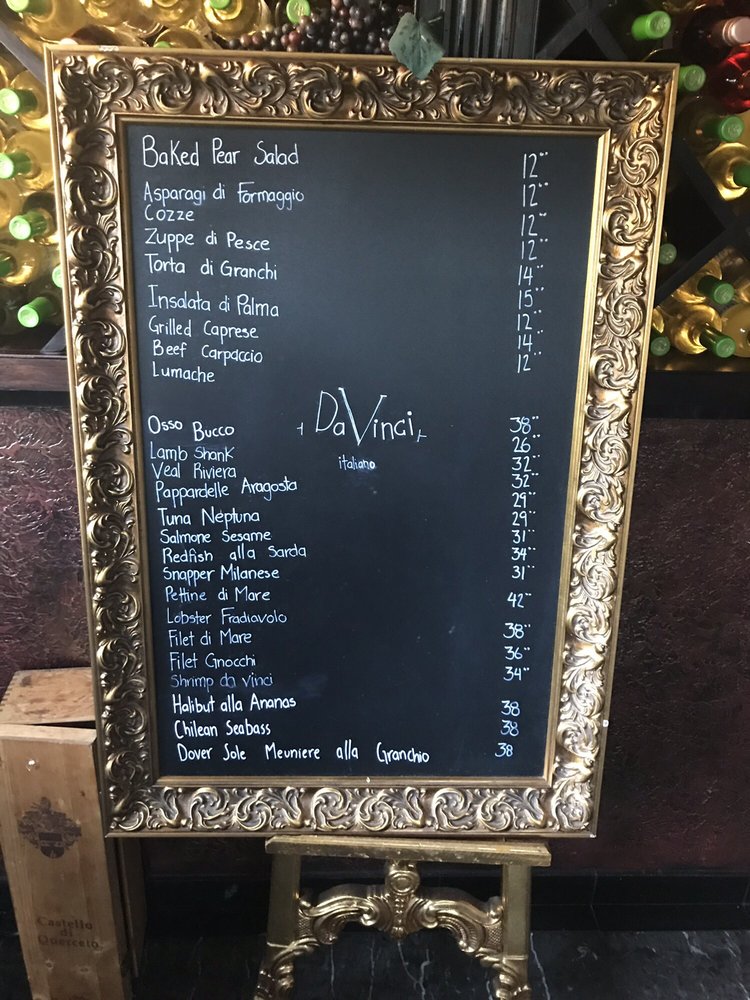 Baked Pear Salad 12¨
Asparagi di Formaggio 12¨
Cozze 12¨
Zuppe di Pesce 12¨
Torta di Granchi 14¨
Insalata di Palma 15¨
Grilled Caprese 12¨
Beef Carpaccio 14¨
Lumache 12¨
DaVinci
italiano
Osso Bucco 38¨
Lamb Shank 26¨
Veal Riviera 32¨
Pappardelle Aragosta 32¨
Tuna Neptuna 29¨
Salmone Sesame 29¨
Redfish alla Sarda 31¨
Snapper Milanese 34¨
Pettine di Mare 31¨
Lobster Fradiavolo 42¨
Filet di Mare 38¨
Filet Gnocchi 36¨
Shrimp da Vinci 34¨
Halibut alla Ananas 38
Chilean Seabass 38
Dover Sole Meuniere alla Granchio 38
Castello
di
Querceto